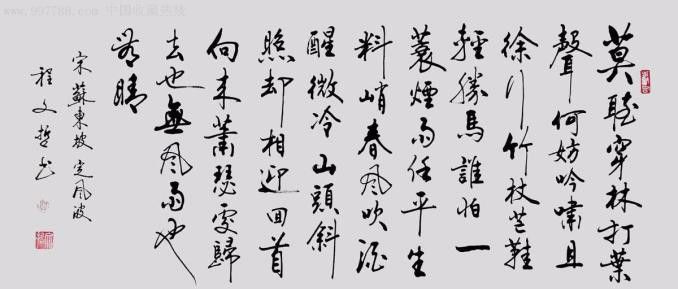 www.997788.com 中国收藏热线
莫聽穿林打葉
聲何妨吟嘯且
徐行竹杖芒鞋
輕勝馬誰怕一
蓑煙雨任平生
料峭春风吹酒
醒微冷山頭斜
照却相迎回首
向来蕭瑟處歸
去也無风雨也
無晴
宋蘇東坡定风波
程文哲书